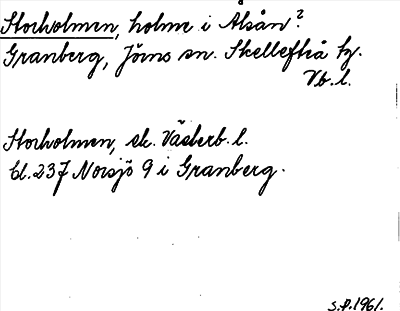 Storholmen, holme i Alsån?
Granberg, Jörns sn. Skellefteå tg.
Vb. l.
Storholmen, sk. Västerb. l.
bl. 237 Norsjö 9 i Granberg.
S.P. 1961.